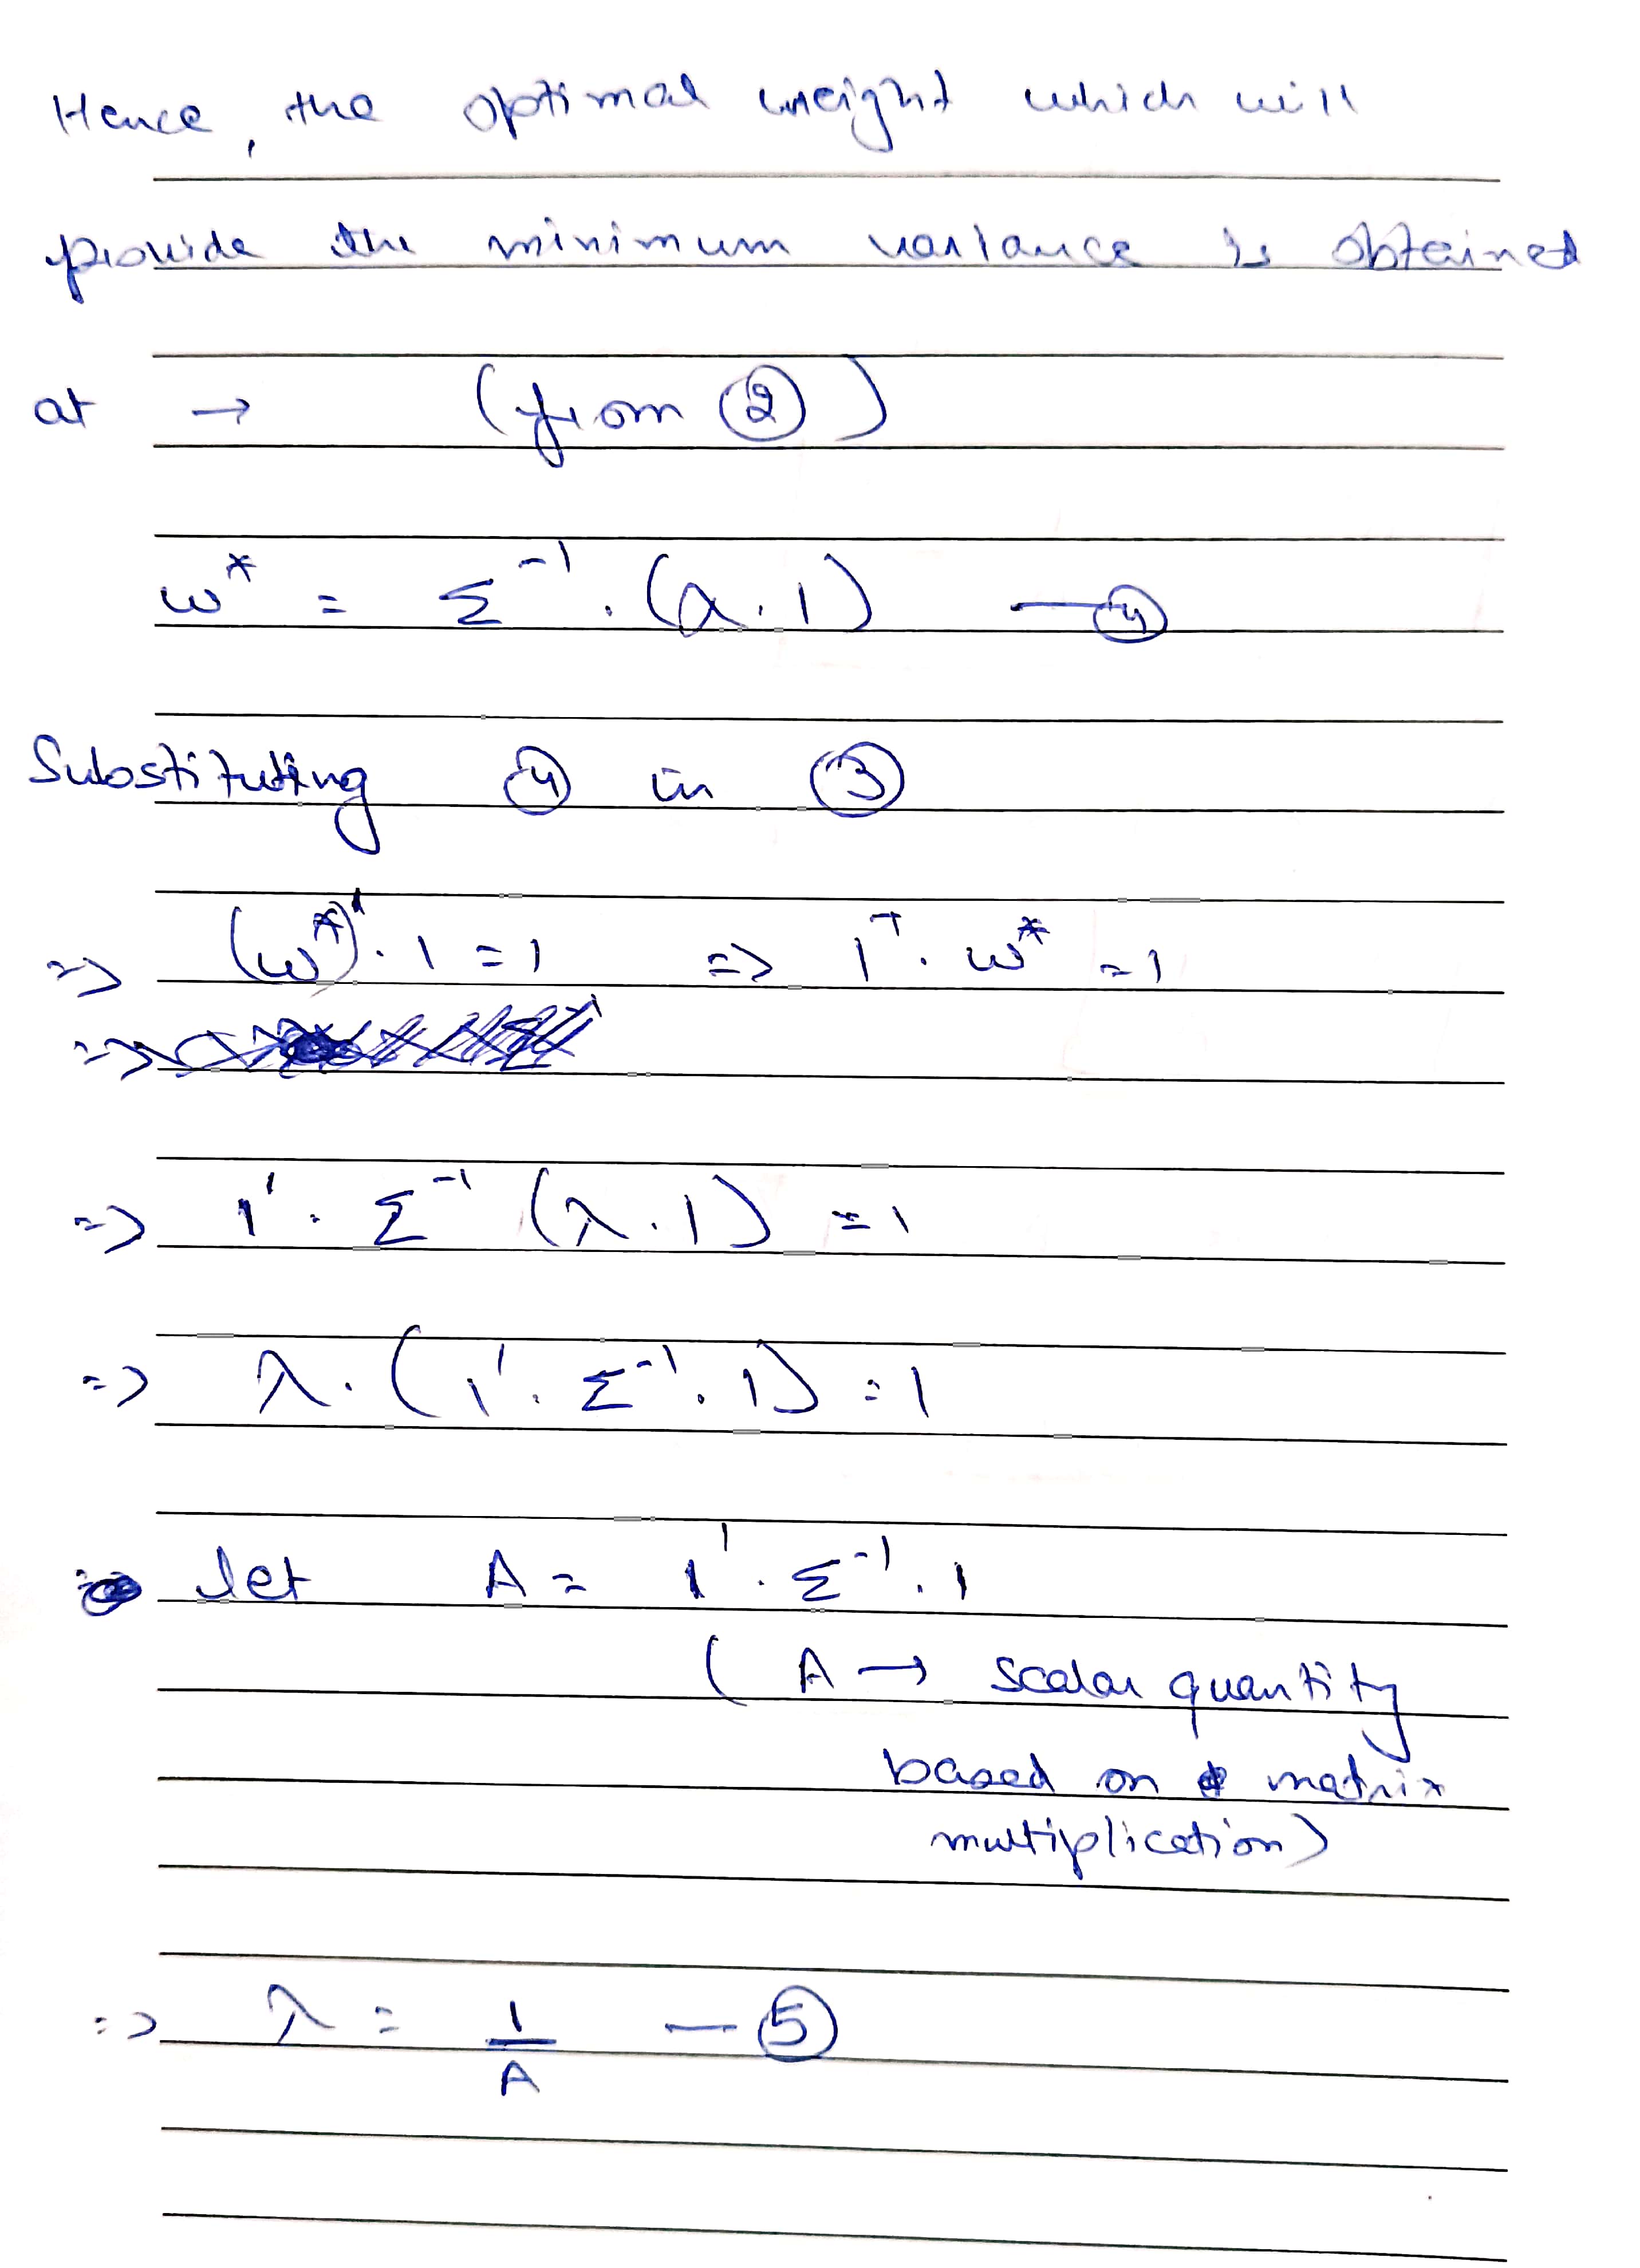 Hence, the optimal weight which will
provide the minimum variance is obtained
at → (from ②)
w* = Σ⁻¹ . (λ . 1) — ④
Substituting ④ in ③
=> (w*)' . 1 = 1 => 1ᵀ . w* = 1
=>
=> 1' . Σ⁻¹ (λ . 1) = 1
=> λ . (1' . Σ⁻¹ . 1) = 1
let A = 1' . Σ⁻¹ . 1
(A → scalar quantity
based on matrix
multiplication)
=> λ = 1/A — ⑤